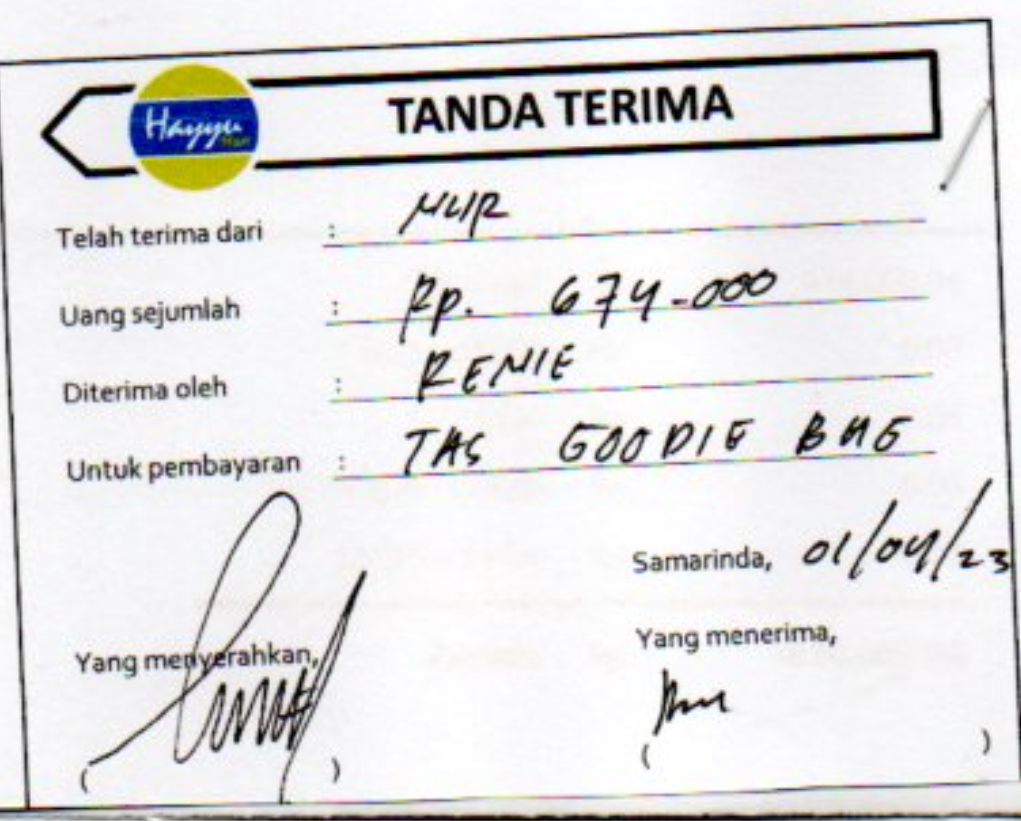 Hayyu
TANDA TERIMA
Telah terima dari : NUR
Uang sejumlah : Rp. 674.000
Diterima oleh : RENIE
Untuk pembayaran : TAS GOODIE BAG
Samarinda, 01/04/23
Yang menyerahkan,
Yang menerima,
( )
( )